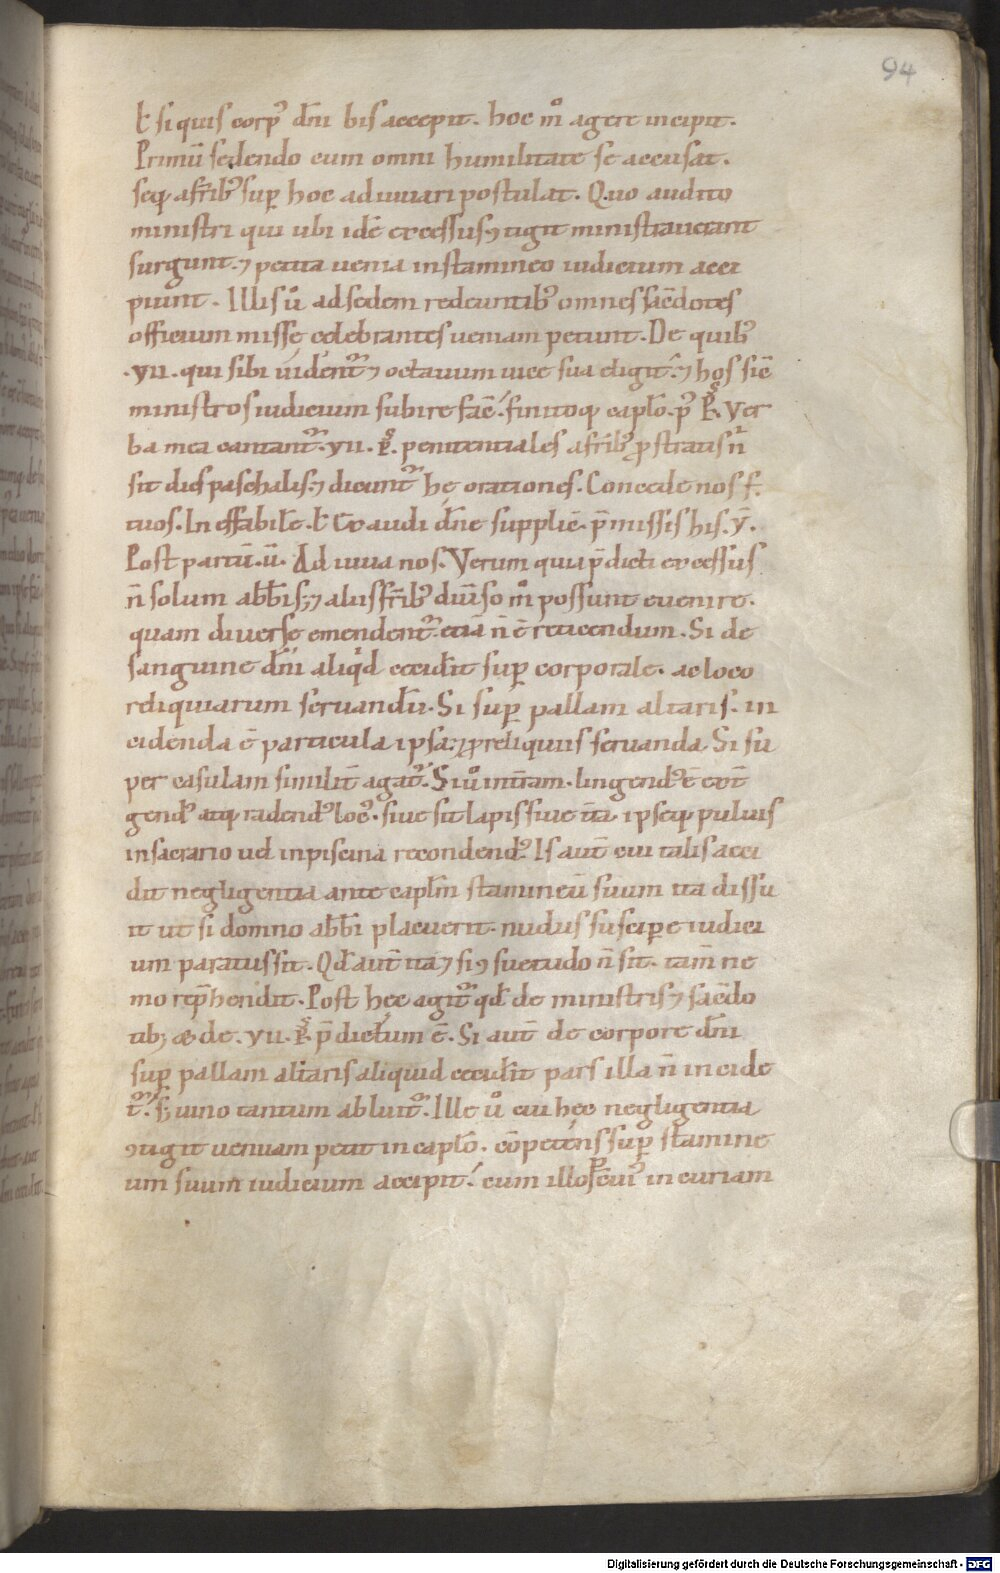 94
ł si quis corp᾽ dn̄i bis accepit. hoc m̊ agere incipit.
Primū sedendo cum omni humilitate se accusat.
seq; a fr̄ib᾽ sup̱ hoc adiuuari postulat. Quo audito
ministri qui ubi idē excessus ꝯtigit ministrauerant
surgunt. ⁊ petita uenia in stamineo iudicium acci
piunt. Illis ů ad sedem redeuntib᾽ omnes sac̄dotes
officium missę celebrantes ueniam petunt. De quib᾽
.vii. qui sibi uident᾽ ⁊ octauum uice sua eligit. ⁊ hos sic̄
ministros iudicium subire fac̄. finitoq; cap̄lo. p᾽ ps̄. Ver
ba mea cantant᾽ .vii. ps̄. penitentiales a fr̄ib᾽ ꝓstratis n̄
sit dies paschalis. ⁊ dicunt᾽ hę orationes. Concede nos f.
tuos. Ineffabilē. ł Exaudi dn̄e supplic̄. p̄missis his. v̄.
Post partū. ū. Adiuua nos. Verum quia p̄dicti excessus
n̄ solum abb̄is; ⁊ aliis fr̄ib᾽ diu̅so m̊ possunt euenire.
quam diuerse emendent᾽ etiā n̄ ē reticendum. Si de
sanguine dn̄i aliq̇d cecid̄it sup̱ corporale. ac loco
reliquiarum seruand̄ū. Si sup̱ pallam altaris. in
cidenda ē particula ipsa. ⁊ ꝓ reliquiis seruanda. Si su
per casulam similit̄ agat᾽. Si ů in t̄ram. lingend᾽ ē ext̄
gend᾽ atq; radend᾽ loc᾽. siue sit lapis siue t̄ra. ipseq; puluis
in sacrario uel in piscina recondend᾽. Is aut̄ cui talis acci
dit negligentia ante cap̄lm stamineū suum ita dissu
it ut si domno abb̄i placuerit. nudus suscip̱e iudici
um paratus sit. Qd̄ aut̄ ita ⁊ si ꝯsuetudo n̄ sit. tam̄ ne
mo rep̄hendit. Post hęc agit᾽ qd̄ de ministris ⁊ sac̄do
tib; ac de .vii. ps̄. p̄dictum ē. Si aut̄ de corpore dn̄i
sup̱ pallam altaris aliquid cecid̄it pars illa n̄ incide
t᾽. s; uino tantum abluit᾽. Ille ů cui hęc negligentia
ꝯtigit ueniam petit in cap̄lo. cōpetens sup̱ stamine
um suum iudicium accipit. cum illos in curiam